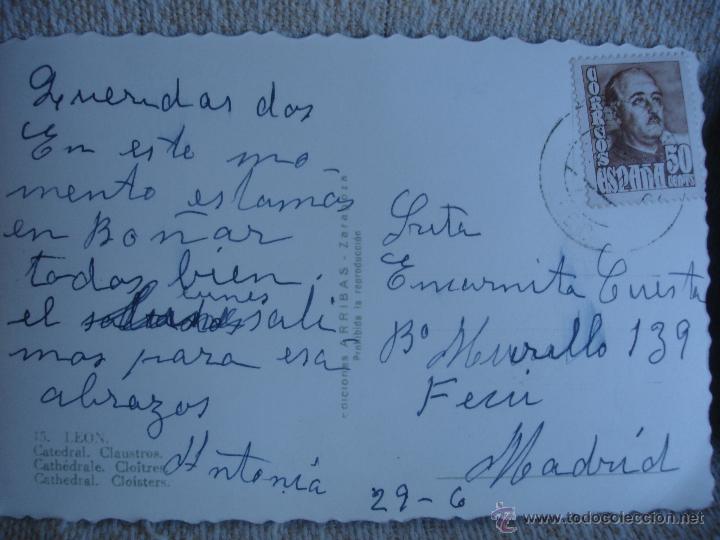 Queridas dos
En este mo
mento estamos
en Boñar
todos bien,
lunes
el sali
mos para esa
abrazos
Antonia
15. LEON.
Catedral. Claustros.
Cathédrale. Cloîtres
Cathedral. Cloisters.
EDICIONES ARRIBAS - Zaragoza
Prohibida la reproducción
CORREOS
ESPAÑA
50
CENTS
Srta
Encarnita Cuesta
Bº Murillo 139
Madrid
29-6
www.todocoleccion.net